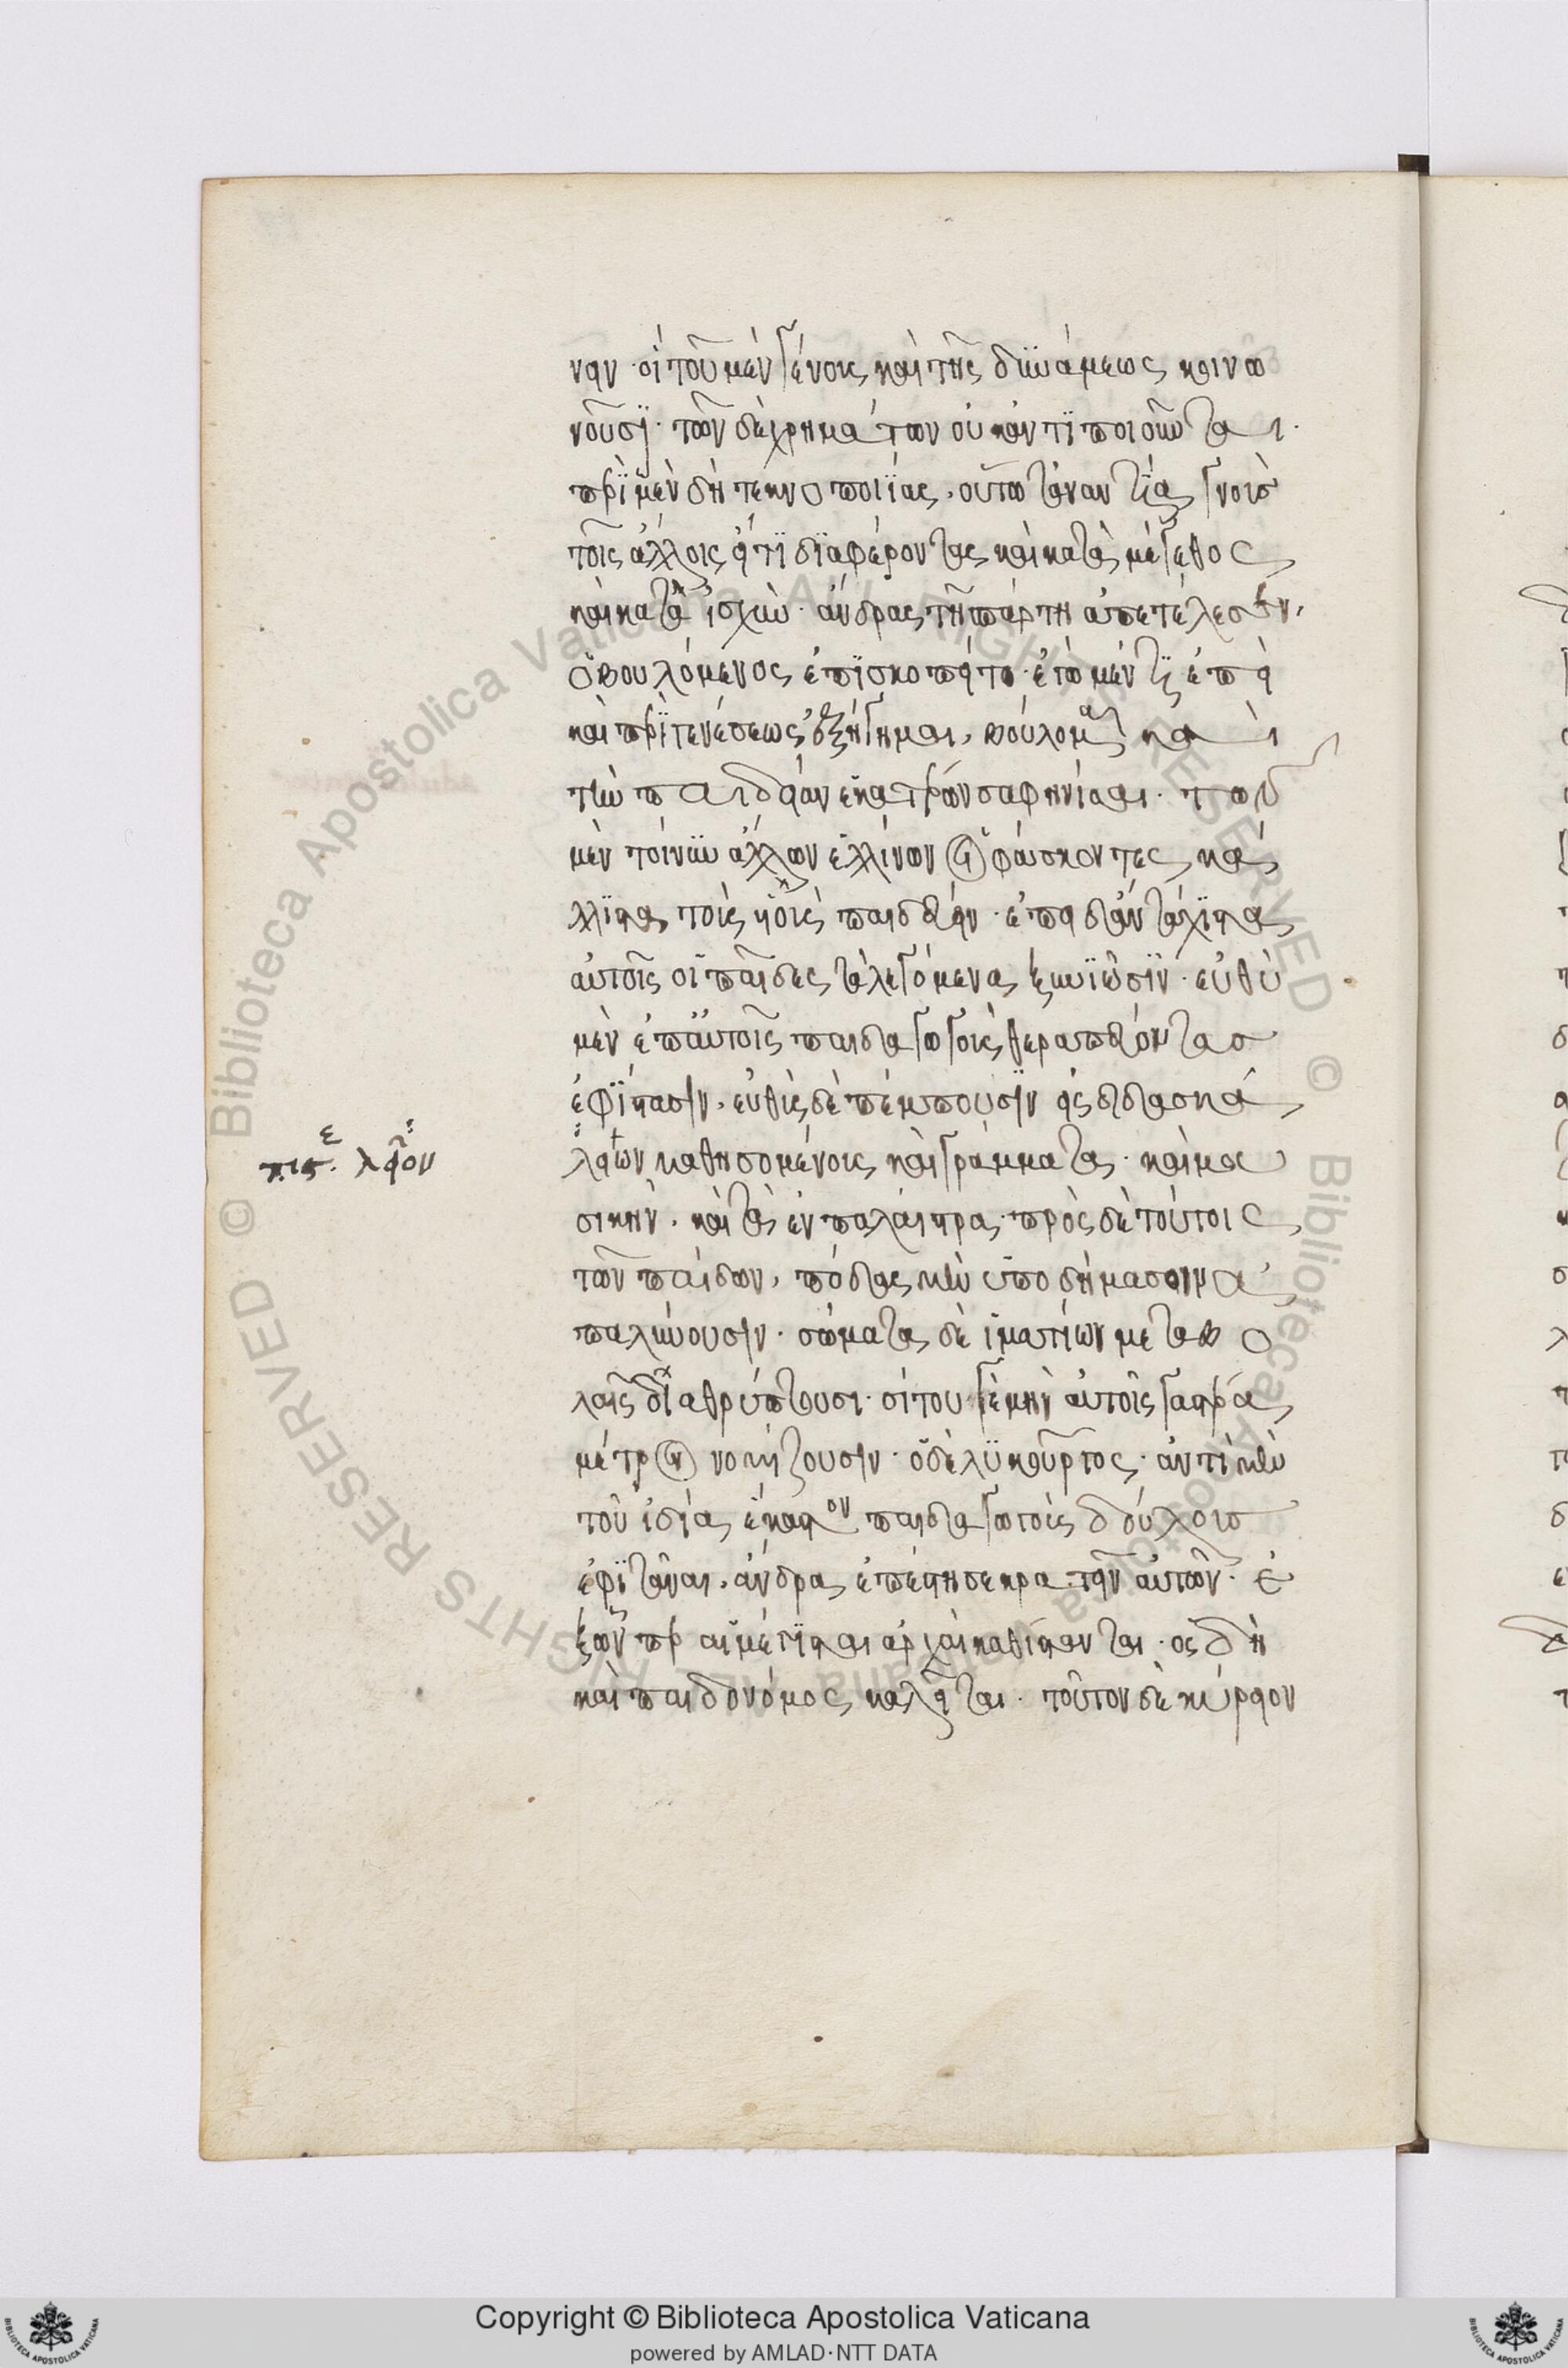 νειν· οἱ τοῦ μὲν γένους καὶ τῆς δυνάμεως κοινω
νοῦσϊ· τῶν δὲ χρημάτων οὐκ ἀντϊποιοῦνται·
περὶ μὲν δὴ τεκνοποιΐας, οὕτω τἀναντία γνοὺσ
τοῖς ἄλλοις εἴ τϊ δϊαφέροντας καὶ κατὰ μέγεθος
καὶ κατὰ ἰσχὺν ἄνδρας τῇ σπάρτῃ ἀπετέλεσεν,
ὁ βουλόμενος ἐπϊσκοπείτω· ἐγὼ μέν τϊ ἐπεὶ
καὶ περὶ γενέσεως ἐξήγημαι, βούλομαι καὶ
τὴν παιδείαν ἑκατέρων σαφηνίσαι· τῶν
μὲν τοίνυν ἄλλων ἑλλήνων οἱ φάσκοντες κά
λλϊστα τοὺς υἱοὺς παιδεύειν· ἐπειδὰν τάχϊστα
αὐτοῖς οἱ παῖδες τὰ λεγόμενα ξυνϊῶσϊν· εὐθὺ
μὲν ἐπ' αὐτοῖς παιδαγωγοὺς θεραπεύοντασ
ἐφϊστᾶσιν, εὐθὺς δὲ πέμπουσιν εἰς διδασκά
λων μαθησομένους καὶ γράμματα· καὶ μου
σικὴν· καὶ τὰ ἐν παλαίστρα· πρὸς δὲ τούτοις
τῶν παίδων, πόδας μὲν ὑποδήμασιν ἁ
παλύνουσιν· σώματα δὲ ἱματίων μεταβο
λαῖς διαθρύπτουσι· σίτου γε μὴν αὐτοῖς γαστέρα
μέτρον νομίζουσιν· ὁ δὲ λϋκοῦργος· ἀντὶ μὲν
τοῦ ἰδία ἕκαστον παιδαγωγοὺς δούλους
ἐφϊστάναι, ἄνδρα ἐπέστησε κρατεῖν αὐτῶν· ἐ
ξ ὧνπερ αἱ μέγϊσται ἀρχαὶ καθίστανται· ὃς δὴ
καὶ παιδονόμος καλεῖται· τοῦτον δὲ κύριον